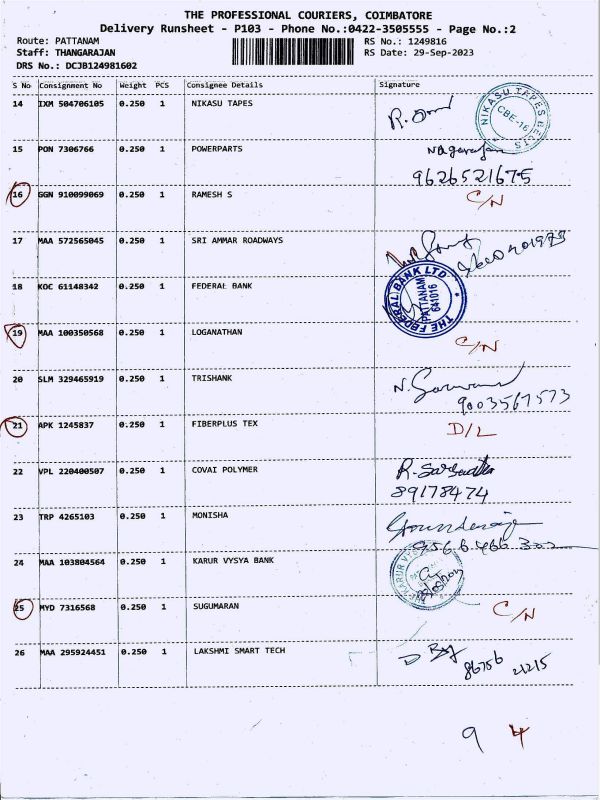 THE PROFESSIONAL COURIERS, COIMBATORE
Delivery Runsheet - P103 - Phone No.:0422-3505555 - Page No.:2
Route: PATTANAM RS No.: 1249816
Staff: THANGARAJAN RS Date: 29-Sep-2023
DRS No.: DCJB124981602
S No Consignment No Weight PCS Consignee Details Signature
14 IXM 504706105 0.250 1 NIKASU TAPES
NIKASU TAPES BELTS
CBE-16
15 PON 7306766 0.250 1 POWERPARTS Nagarajan
9626521675
16 GGN 910099069 0.250 1 RAMESH S C/N
17 MAA 572565045 0.250 1 SRI AMMAR ROADWAYS
18 KOC 61148342 0.250 1 FEDERAL BANK
THE FEDERAL BANK LTD
PATTANAM
641016
19 MAA 100350568 0.250 1 LOGANATHAN C/N
20 SLM 329465919 0.250 1 TRISHANK
9003567573
21 APK 1245837 0.250 1 FIBERPLUS TEX D/L
22 VPL 220400507 0.250 1 COVAI POLYMER
89178474
23 TRP 4265103 0.250 1 MONISHA
24 MAA 103804564 0.250 1 KARUR VYSYA BANK
25 MYD 7316568 0.250 1 SUGUMARAN C/N
26 MAA 295924451 0.250 1 LAKSHMI SMART TECH
86756 21215
9 4